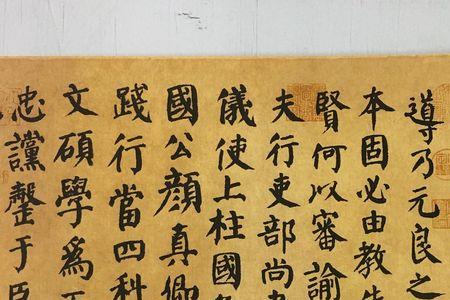 導乃元良之
本固必由教
賢何以審諭
夫行吏部尚
儀使上柱國
國公顏真卿
踐行當四科
文碩學爲
忠讜罄于臣